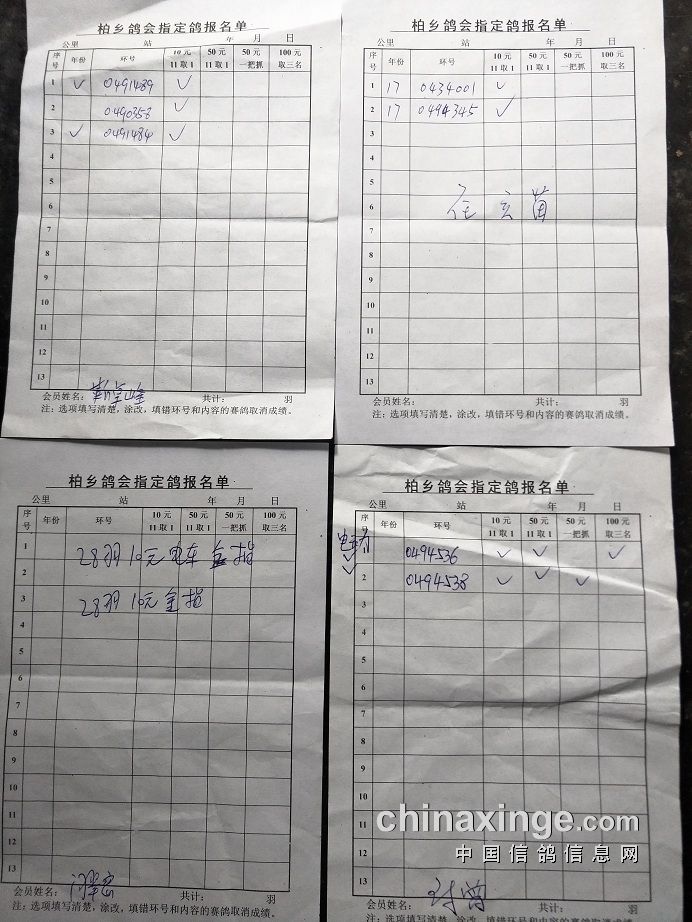 柏乡鸽会指定鸽报名单
公里 站 年 月 日
序号 年份 环号 10元 11取1 50元 11取1 50元 一把抓 100元 取三名
1 ✓ 0491489 ✓
2 0490358 ✓
3 ✓ 0491484 ✓
4
5
6
7
8
9
10
11
12
13
会员姓名： 共计： 羽
注：选项填写清楚，涂改，填错环号和内容的赛鸽取消成绩。
柏乡鸽会指定鸽报名单
公里 站 年 月 日
序号 年份 环号 10元 11取1 50元 11取1 50元 一把抓 100元 取三名
1 17 0434001 ✓
2 17 0494345 ✓
3
4
5
6
7
8
9
10
11
12
13
会员姓名： 共计： 羽
注：选项填写清楚，涂改，填错环号和内容的赛鸽取消成绩。
柏乡鸽会指定鸽报名单
公里 站 年 月 日
序号 年份 环号 10元 11取1 50元 11取1 50元 一把抓 100元 取三名
1 28羽10元电车全指
2
3 28羽10元全指
4
5
6
7
8
9
10
11
12
13
会员姓名： 共计： 羽
注：选项填写清楚，涂改，填错环号和内容的赛鸽取消成绩。
柏乡鸽会指定鸽报名单
公里 站 年 月 日
序号 年份 环号 10元 11取1 50元 11取1 50元 一把抓 100元 取三名
1 0494536 ✓ ✓ ✓
2 ✓ 0494538 ✓ ✓ ✓
3
4
5
6
7
8
9
10
11
12
13
会员姓名： 共计： 羽
注：选项填写清楚，涂改，填错环号和内容的赛鸽取消成绩
chinaxinge.com
中国信鸽信息网